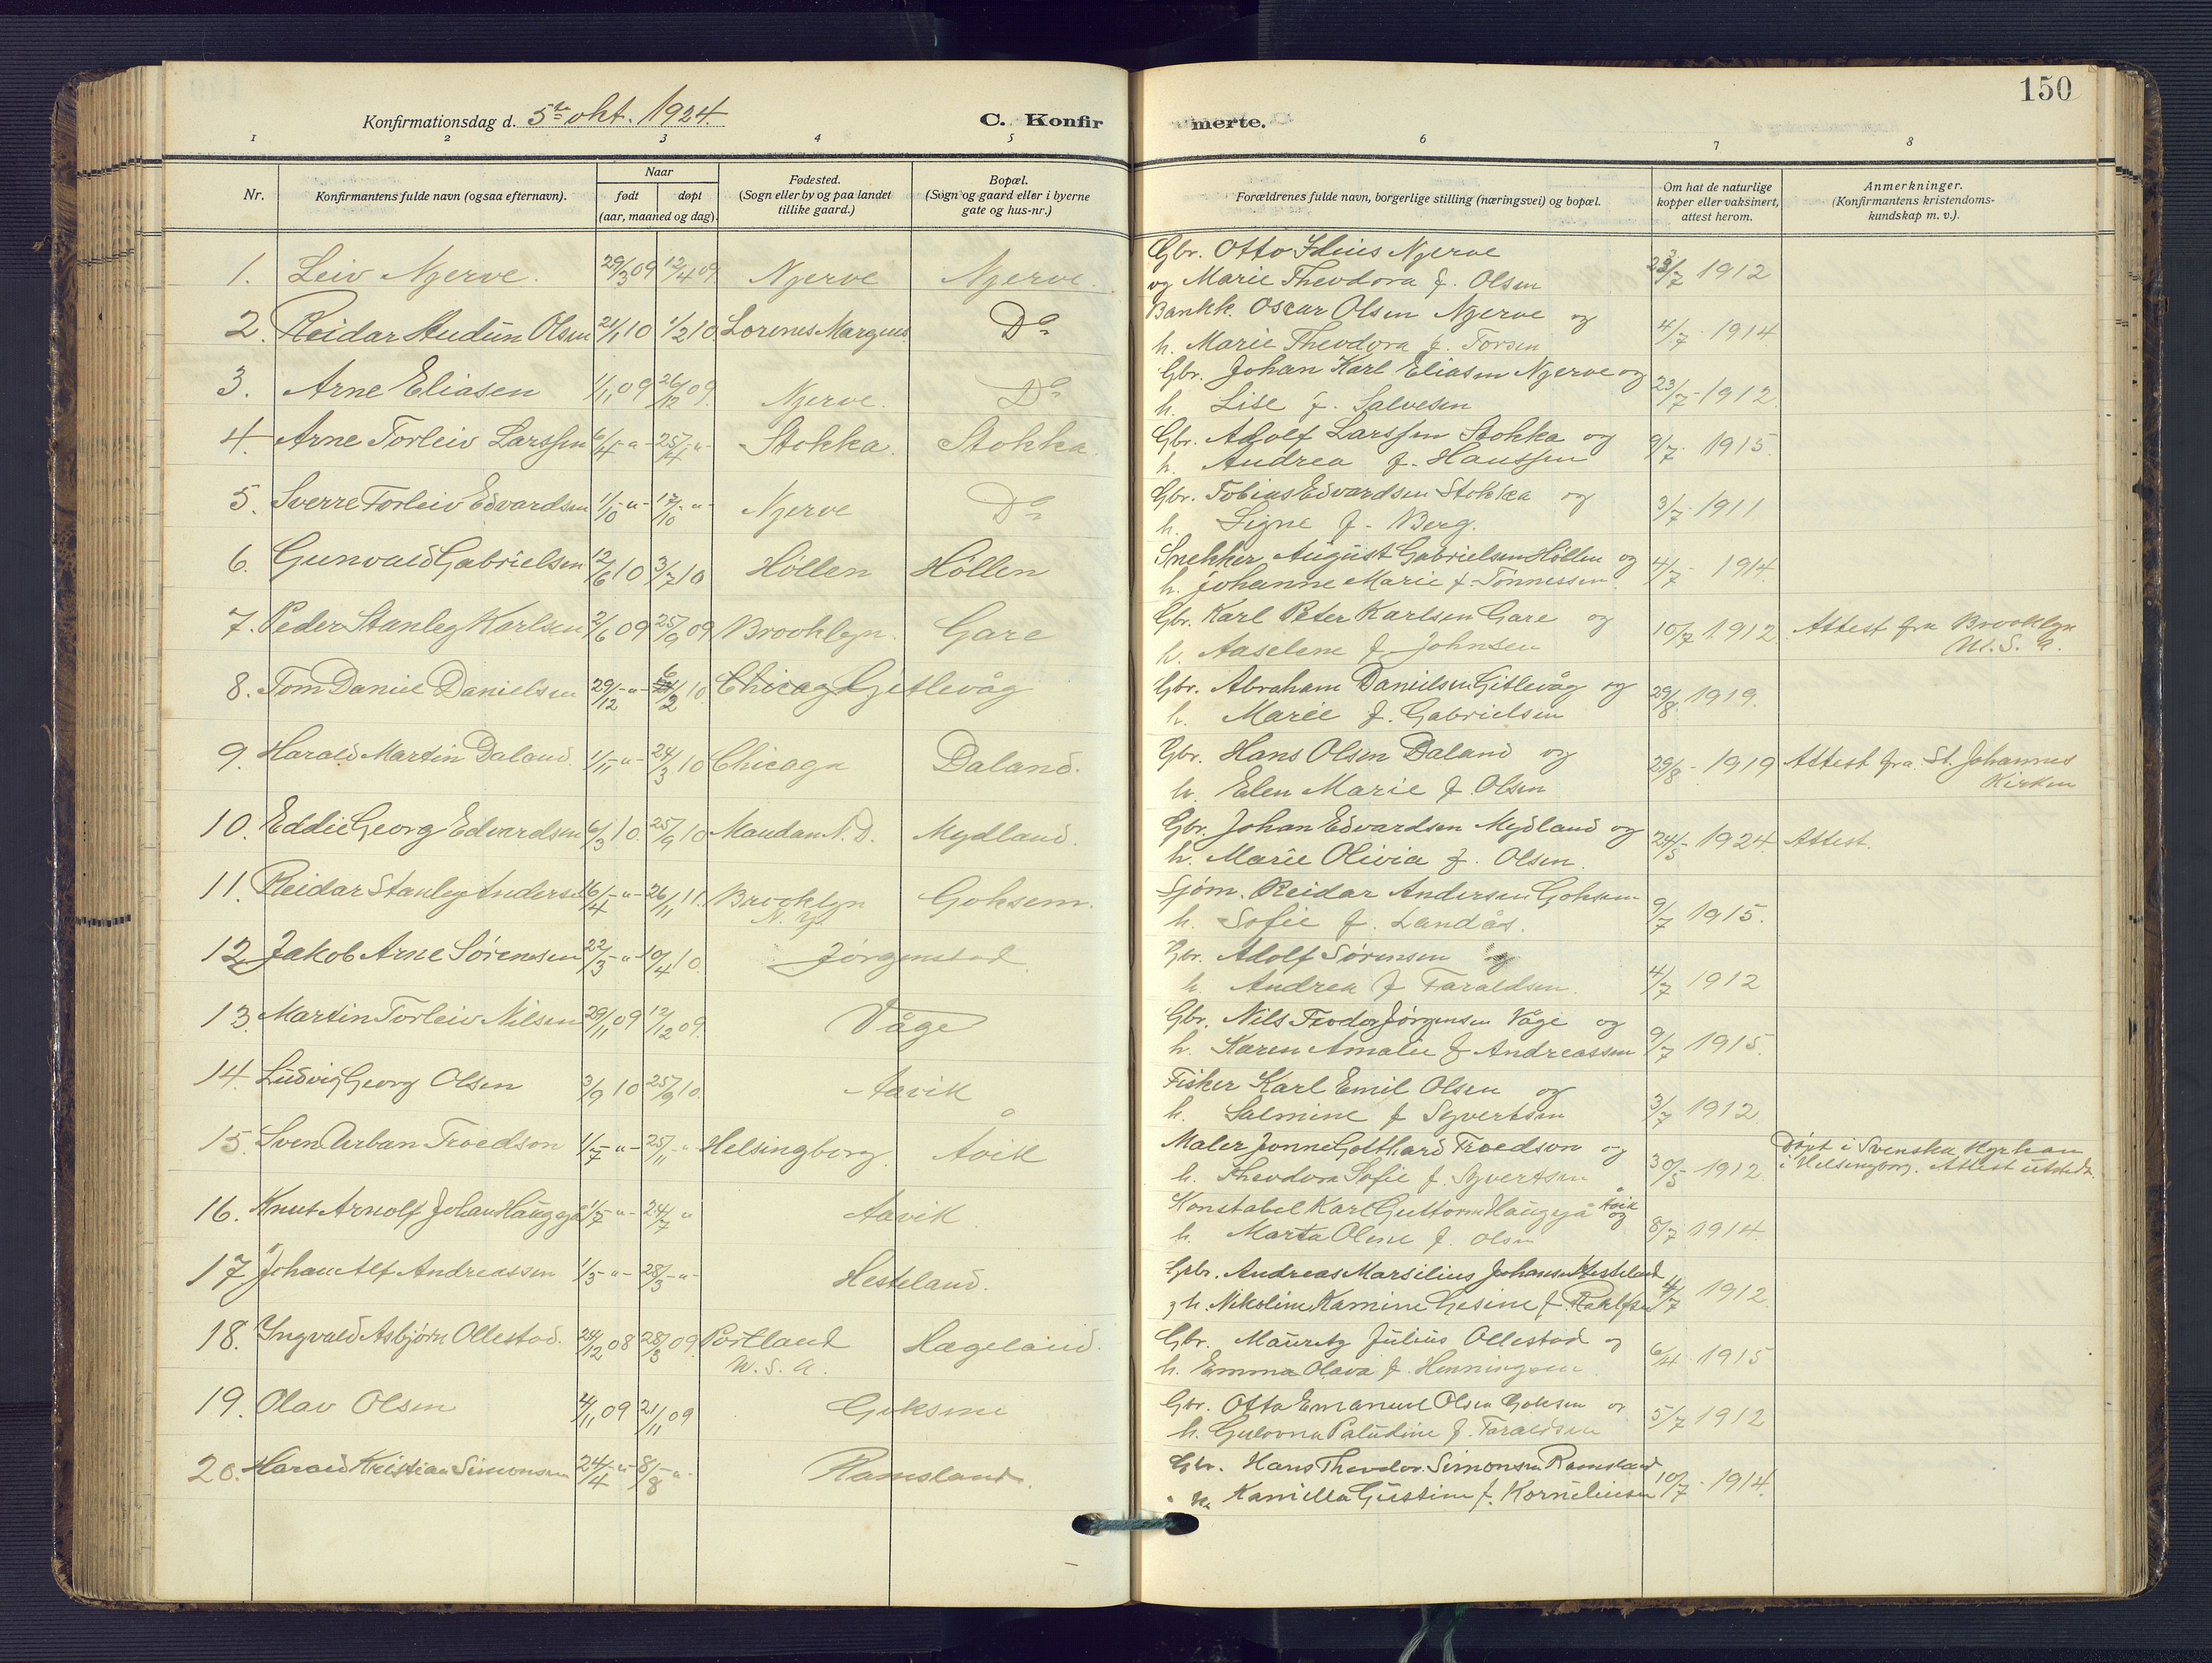 150
Konfirmationsdag d. 5te okt. 1924.
C. Konfirmerte.
1 2 3 4 5 6 7 8
Nr.
Konfirmantens fulde navn (ogsaa efternavn).
Naar
født
døpt
(aar, maaned og dag).
Fødested.
(Sogn eller by og paa landet
tillike gaard.)
Bopæl.
(Sogn og gaard eller i byerne
gate og hus-nr.)
Forældrenes fulde navn, borgerlige stilling (næringsvei) og bopæl.
Om hat de naturlige
kopper eller vaksinert,
attest herom.
Anmerkninger.
(Konfirmantens kristendoms-
kundskap m. v.).
1. Leiv Njerve. 29/3 09 12/4 09. Njerve Njerve. Gbr. Otto Njerve
og Marie Theodora f. Olsen 23/7 1912
2. Reidar Olsen 21/1 10 1/2 10 Lorenes Marques Do Bankk. Oscar Olsen Njerve og
h. Marie Theodora f. Torsen 4/7 - 1914.
3. Arne Eliasen 1/11 09 26/12 09. Njerve. Do Gbr. Johan Karl Eliasen Njerve og
h. Lise f. Salvesen 23/7 - 1912.
4. Arne Torleiv Larssen 6/4 -"- 25/4 -"- Stokka. Stokka. Gbr. Adolf Larssen Stokka og
h. Andrea f. Hanssen 9/7 1915.
5. Sverre Torleiv Edvardsen 1/10 -"- 17/10 -"- Njerve Do Gbr. Tobias Edvardsen Stokka og
h. Signe f. Berg. 3/7 - 1911
6. Gunvald Gabrielsen 12/6 10 3/7 10 Höllen Höllen Snekker August Gabrielsen Höllen og
h. Johanne Marie f. Tönnessen 4/7 - 1914.
7. Peder Stanley Karlsen 2/6 09 25/9 09 Brooklyn. Gare Gbr. Karl Peter Karlsen Gare og
h. Aaselene f. Johnsen 10/7 1912. Attest fra Brooklyn
U. S. A.
8. Tom Daniel Danielsen 29/12 -"- 6/2 10. Chicag Gjitlevåg Gbr. Abraham Danielsen Gitlevåg og
h. Marie f. Gabrielsen 29/8 1919.
9. Harald Martin Daland. 1/11 -"- 24/3 10 Chicago Daland. Gbr. Hans Olsen Daland og
h. Elen Marie f. Olsen 29/8 - 1919 Attest fra St. Johannes
Kirken
10. Eddie Georg Edvardsen 6/3 10. 25/9 10 Mandan N. D. Mydland. Gbr. Johan Edvardsen Mydland og
h. Marie Olivia f. Olsen. 24/5 - 1924. Attest.
11. Reidar Stanley Andersen 16/4 -"- 26/11 11. Brooklyn
N. Y. Goksem. Sjöm. Reidar Andersen Goksem
h. Sofie f. Landås. 9/7 1915.
12. Jakob Arne Sörensen 22/3 -"- 10/4 10. Jörgenstad Gbr. Adolf Sörensen og
h. Andrea f. Taraldsen. 4/7 1912
13. Martin Torleiv Nilsen 29/11 09 12/12 09. Våge Gbr. Nils Teodor Jörgensen Våge og
h. Karen Amalie f. Andreassen 9/7 1915.
14. Ludvig Georg Olsen 3/9 10 25/9 10. Aavik Fisker Karl Emil Olsen og
h. Salmine f. Syvertsen 3/7 1912
15. Sven Urban Troedson 1/7 -"- 25/11 -"- Helsingborg. Åvik Maler Jonne Gotthard Troedson og
h. Theodora Sofie f. Syvertsen 30/5 1912. Döpt i Svenska Kyrkan
i Helsingborg. Attest utstedt.
16. Knut Arnolf Johan Haugsjå 1/7 -"- 24/7 " Aavik Konstabel Karl Guttorm Haugsjå Åvik og
h. Marta Oline f. Olsen 8/7 1914.
17. Johan Alf Andreassen 1/3 -"- 28/3 -"- Hesteland. Gbr. Andreas Marsilius Johansen Hesteland
og h. Nikoline Kamine Gesine f. 4/7 1912.
18. Yngvald Asbjörn Ollestad. 24/12 08 28/3 09. Portland
U. S. A. Hægeland. Gbr. Mauritz Julius Ollestad og
h. Emma Olava f. Henningsen. 6/4 - 1915
19. Olav Olsen 4/11 09 21/11 09 Goksem Gbr. Otto Emanuel Olsen Goksem og
h. Paludine f. Taraldsen 5/7 1912
20. Harald Kristian Simonsen 24/4 -"- 8/8 -"- Ramsland. Gbr. Hans Theodor Simonsen Ramsland
" h. Kamilla Gustine f. Korneliussen 10/7 - 1914.